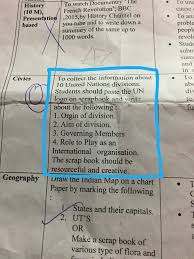 History
(10 M),
Presentation
based
To watch Documentary "The
French Revolution"; BBC
2015, by History Channel on
you tube and to write down a
summary of the same up to
1000 words.
Civics
To collect the information about
10 United Nations divisions.
Students should paste the UN
logo on scrapbook and write
about the following:
1. Orgin of division.
2. Aim of division.
3. Governing Members
4. Role to Play as an
International organisation.
The scrap book should be
resourceful and creative.
Geography
Draw the Indian Map on a chart
Paper by marking the following
States and their capitals.
2. UT'S
OR
Make a scrap book of
various type of flora and